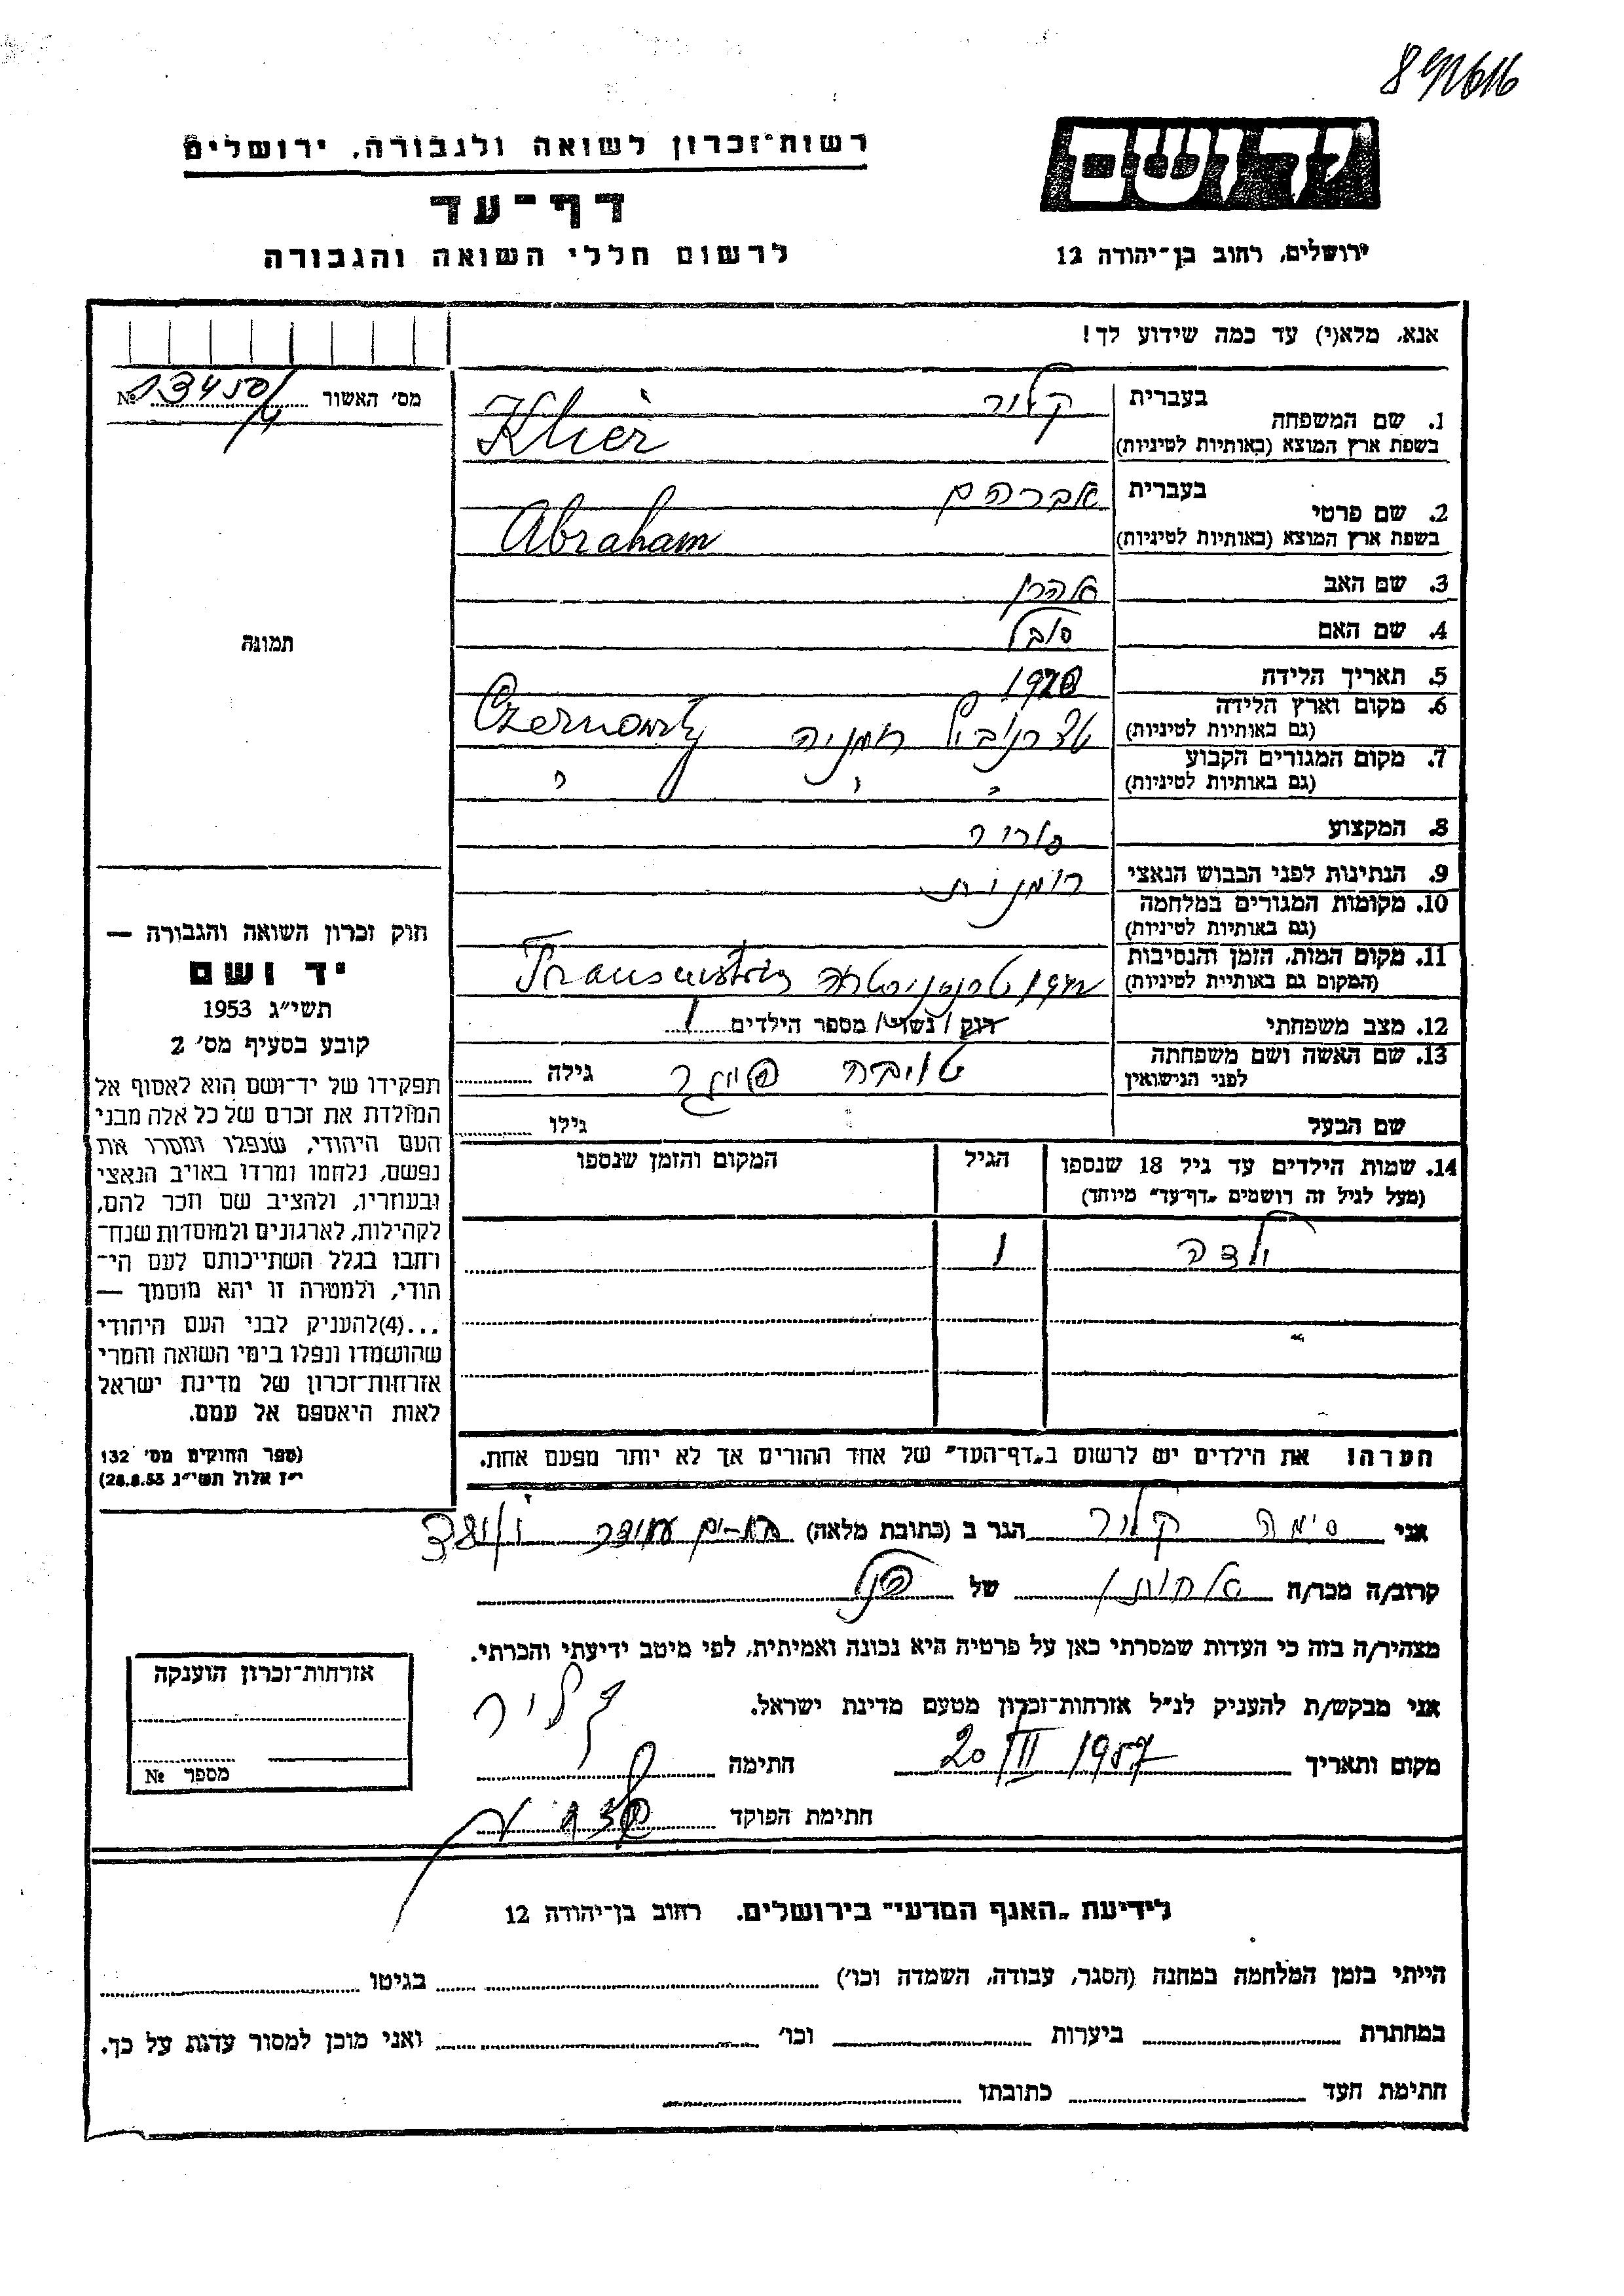 891616
רשות־זכרון לשואה ולגבורה, ירושלים
דף־עד
לרשום חללי השואה והגבורה
יד ושם
ירושלים, רחוב בן־יהודה 12
אנא, מלא(י) עד כמה שידוע לך!
מס' האשור № 13450/4
תמונה
1. שם המשפחה
בעברית קליר
בשפת ארץ המוצא (באותיות לטיניות) Klier
2. שם פרטי
בעברית אברהם
בשפת ארץ המוצא (באותיות לטיניות) Abraham
3. שם האב אהרן
4. שם האם
5. תאריך הלידה
6. מקום וארץ הלידה
(גם באותיות לטיניות) רומניה Czernowitz
7. מקום המגורים הקבוע
(גם באותיות לטיניות) " " "
8. המקצוע
9. הנתינות לפני הכבוש הנאצי רומנית
10. מקומות המגורים במלחמה
(גם באותיות לטיניות)
11. מקום המות, הזמן והנסיבות
(המקום גם באותיות לטיניות) טרנסניסטריה Transnistria
12. מצב משפחתי רוק / נשוי / מספר הילדים 1
13. שם האשה ושם משפחתה
לפני הנישואין טויבה גילה
שם הבעל גילו
14. שמות הילדים עד גיל 18 שנספו
(מעל לגיל זה רושמים „דף־עד" מיוחד)
הגיל
המקום והזמן שנספו
ילדה 1
הערה! את הילדים יש לרשום ב„דף־העד" של אחד ההורים אך לא יותר מפעם אחת.
חוק זכרון השואה והגבורה —
יד ושם
תשי"ג 1953
קובע בסעיף מס' 2
תפקידו של יד־ושם הוא לאסוף אל
המולדת את זכרם של כל אלה מבני
העם היהודי, שנפלו ומסרו את
נפשם, נלחמו ומרדו באויב הנאצי
ובעוזריו, ולהציב שם וזכר להם,
לקהילות, לארגונים ולמוסדות שנח־
רחבו בגלל השתייכותם לעם הי־
הודי, ולמטרה זו יהא מוסמך —
...(4)להעניק לבני העם היהודי
שהושמדו ונפלו בימי השואה והמרי
אזרחות־זכרון של מדינת ישראל
לאות היאספם אל עמם.
(ספר החוקים מס' 132
י"ז אלול תשי"ג 28.8.53)
אני סימה קליר הגר ב (כתובת מלאה) בת־ים
קרוב/ה מכר/ה של הנ"ל
מצהיר/ה בזה כי העדות שמסרתי כאן על פרטיה היא נכונה ואמיתית, לפי מיטב ידיעתי והכרתי.
אני מבקש/ת להעניק לנ"ל אזרחות־זכרון מטעם מדינת ישראל.
מקום ותאריך 20/III 1957 חתימה קליר
חתימת הפוקד
אזרחות־זכרון הוענקה
מספר №
לידיעת „האגף המדעי" בירושלים, רחוב בן־יהודה 12
הייתי בזמן המלחמה במחנה (הסגר, עבודה, השמדה וכו') בגיטו
במחתרת ביערות וכו' ואני מוכן למסור עדות על כך.
חתימת העד כתובתו